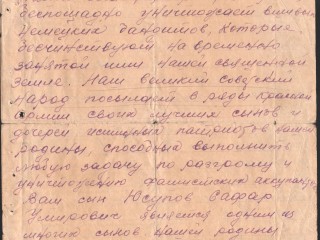 беспощадно уничтожает
Немецких бандитов, которые
бесчинствуют на временно
занятой ими нашей священной
земле. Наш великий советский
народ посылает в ряды красной
армии своих лучших сынов и
дочерей истинных патриотов нашей
родины, способных выполнить
любую задачу по разгрому и
уничтожению фашистских
Вам сын Юсупов Сафар
Умирович является одним из
многих сынов нашей родины